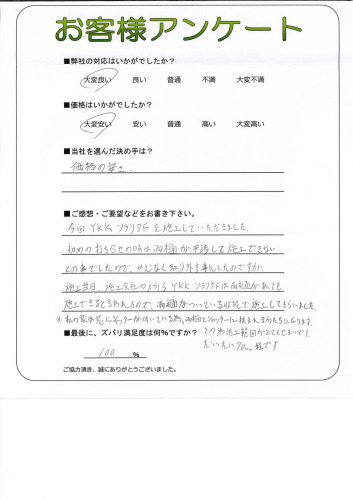 お客様アンケート
■弊社の対応はいかがでしたか？
大変良い 良い 普通 不満 大変不満
■価格はいかがでしたか？
大変安い 安い 普通 高い 大変高い
■当社を選んだ決め手は？
価格の安さ.
■ご感想・ご要望などをお書き下さい。
今回 YKK ソラリアF を施工していただきました。
初めの打ち合せの時は雨樋が干渉して施工できない
との事でしたので、やむなく取り外す事にしたのですが、
施工当日、施工会社の方から YKK ソラリアFは雨樋があっても
施工できると言われたので、雨樋がついている状態で施工してもらいました。
※私の家は窓にシャッターが付いている為、雨樋とシャッターに挟まれるかたちになります。
■最後に、ズバリ満足度は何％ですか？
その為施工範囲がとてもせまいです。
だいたい70cm程です
100 ％
ご協力頂き、誠にありがとうございました。